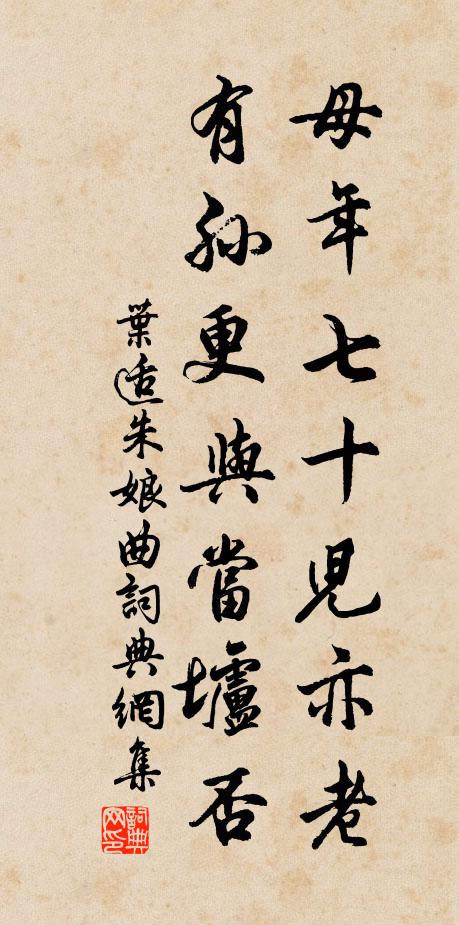 母年七十児亦老
有孙更與當壚否
葉适朱娘曲詞典網集
詞典網印